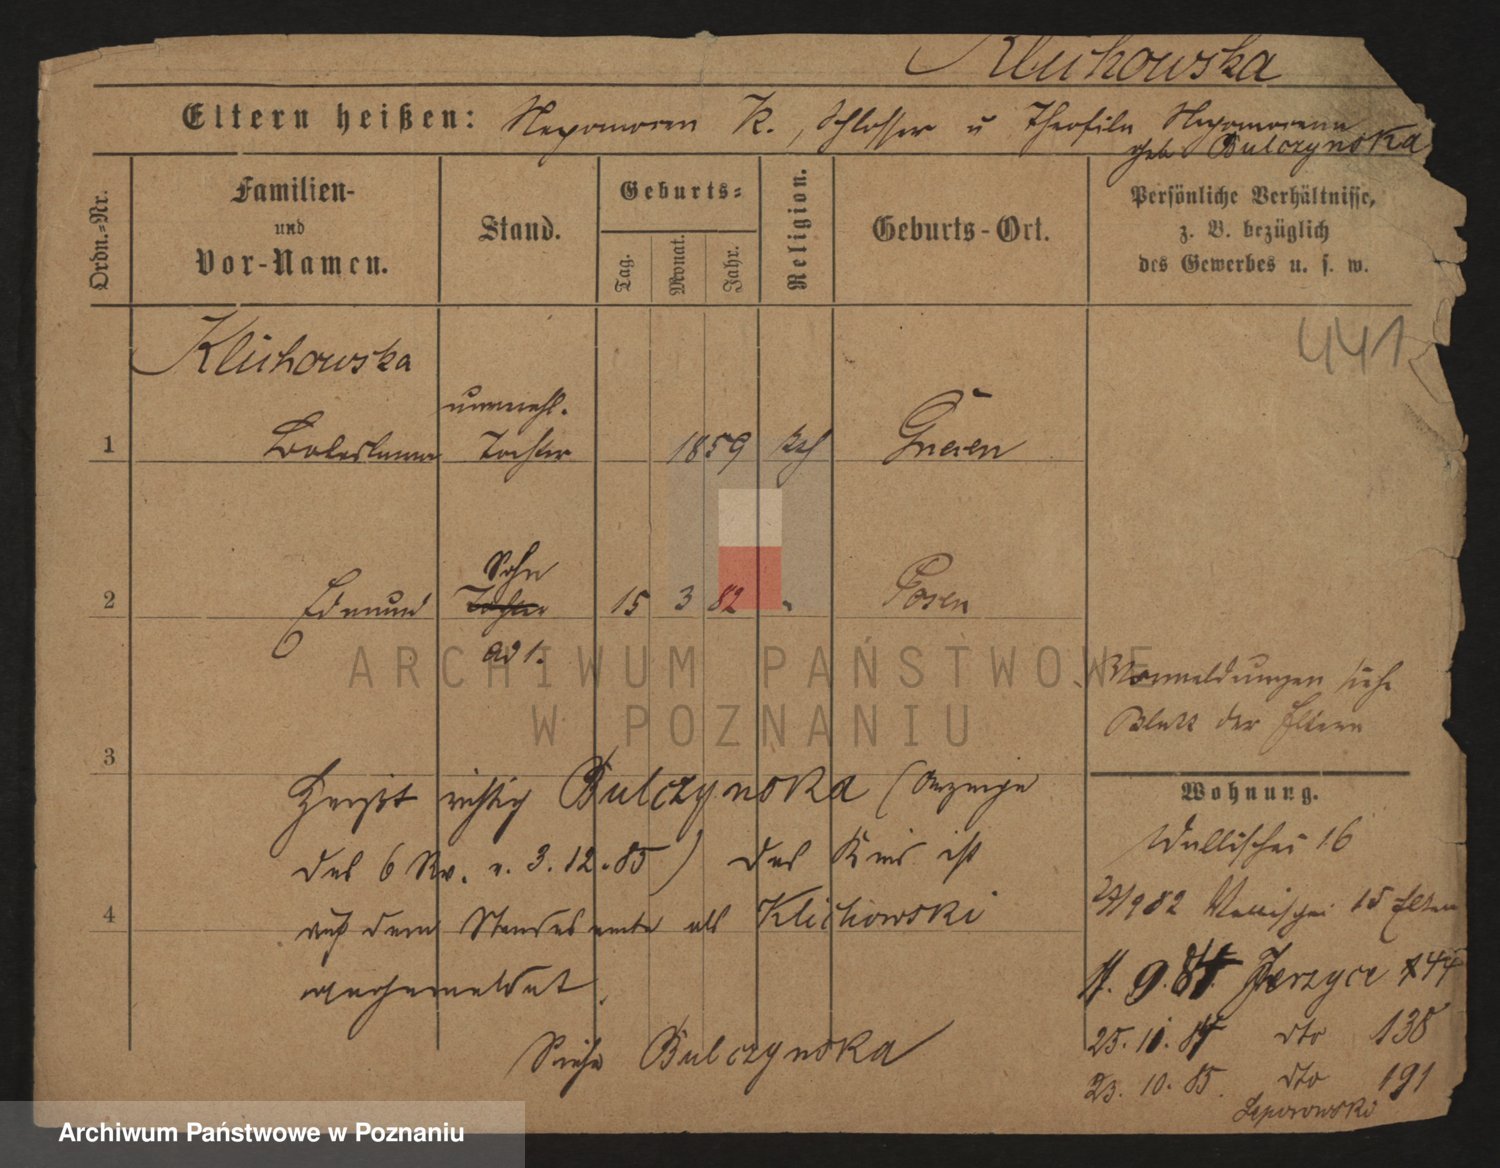 Klichowska
Eltern heißen: Nepomocen K., Schlosser u Theofila Nepomocena
geb. Bulczynska
Ordn.-Nr.
Familien-
und
Vor-Namen.
Stand.
Geburts-
Tag.
Monat.
Jahr.
Religion.
Geburts-Ort.
Persönliche Verhältnisse,
z. B. bezüglich
des Gewerbes u. s. w.
441
Klichowska
unverehl.
1 Boleslawa Tochter 1859 kth Gnesen
Sohn
2 Edmund Tochter 15 3 82 " Posen
ad 1.
Anmeldungen siehe
Blatt der Eltern
3
Heißt richtig Bulczynska (Anzeige
des 6 Rv. v. 3.12.85) das Kind ist
4
auf dem Standesamte als Klichowski
angemeldet.
Siehe Bulczynska
Wohnung.
Wallischei 16
29/9 82 Wallischei 15 Eltern
11. 9. 84. Jerzyce 44
25. 11. 84 dto 138
23. 10. 85. dto 191
Leporowski
ARCHIWUM PAŃSTWOWE
W POZNANIU
Archiwum Państwowe w Poznaniu